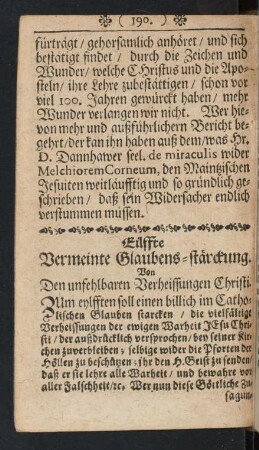 ( 190. )
fürträgt / gehorsamlich anhöret / und sich
bestätigt findet / durch die Zeichen und
Wunder / welche CHristus und die Apo-
steln / ihre Lehre zubestättigen / schon vor
viel 100. Jahren gewürckt haben / mehr
Wunder verlangen wir nicht. Wer hie-
von mehr und außführlichern Bericht be-
gehrt / der kan ihn haben auß dem / was Hr.
D. Dannhawer seel. de miraculis wider
Melchiorem Corneum, den Maintzischen
Jesuiten weitläufftig und so gründlich ge-
schrieben / daß sein Widersacher endlich
verstummen müssen.
Eilffte
Vermeinte Glaubens-stärckung.
Von
Den unfehlbaren Verheissungen Christi.
ZUm eylfften soll einen billich im Catho-
lischen Glauben starcken / die vielfältige
Verheissungen der ewigen Warheit JEsu Chri-
sti / der außdrücklich versprochen / bey seiner Kir-
chen zuverbleiben; selbige wider die Pforten der
Höllen zu beschützen; ihr den H. Geist zu senden /
daß er sie lehre alle Warheit / und bewahre vor
aller Falschheit / rc. Wer nun diese Göttliche Zu-
sagun-